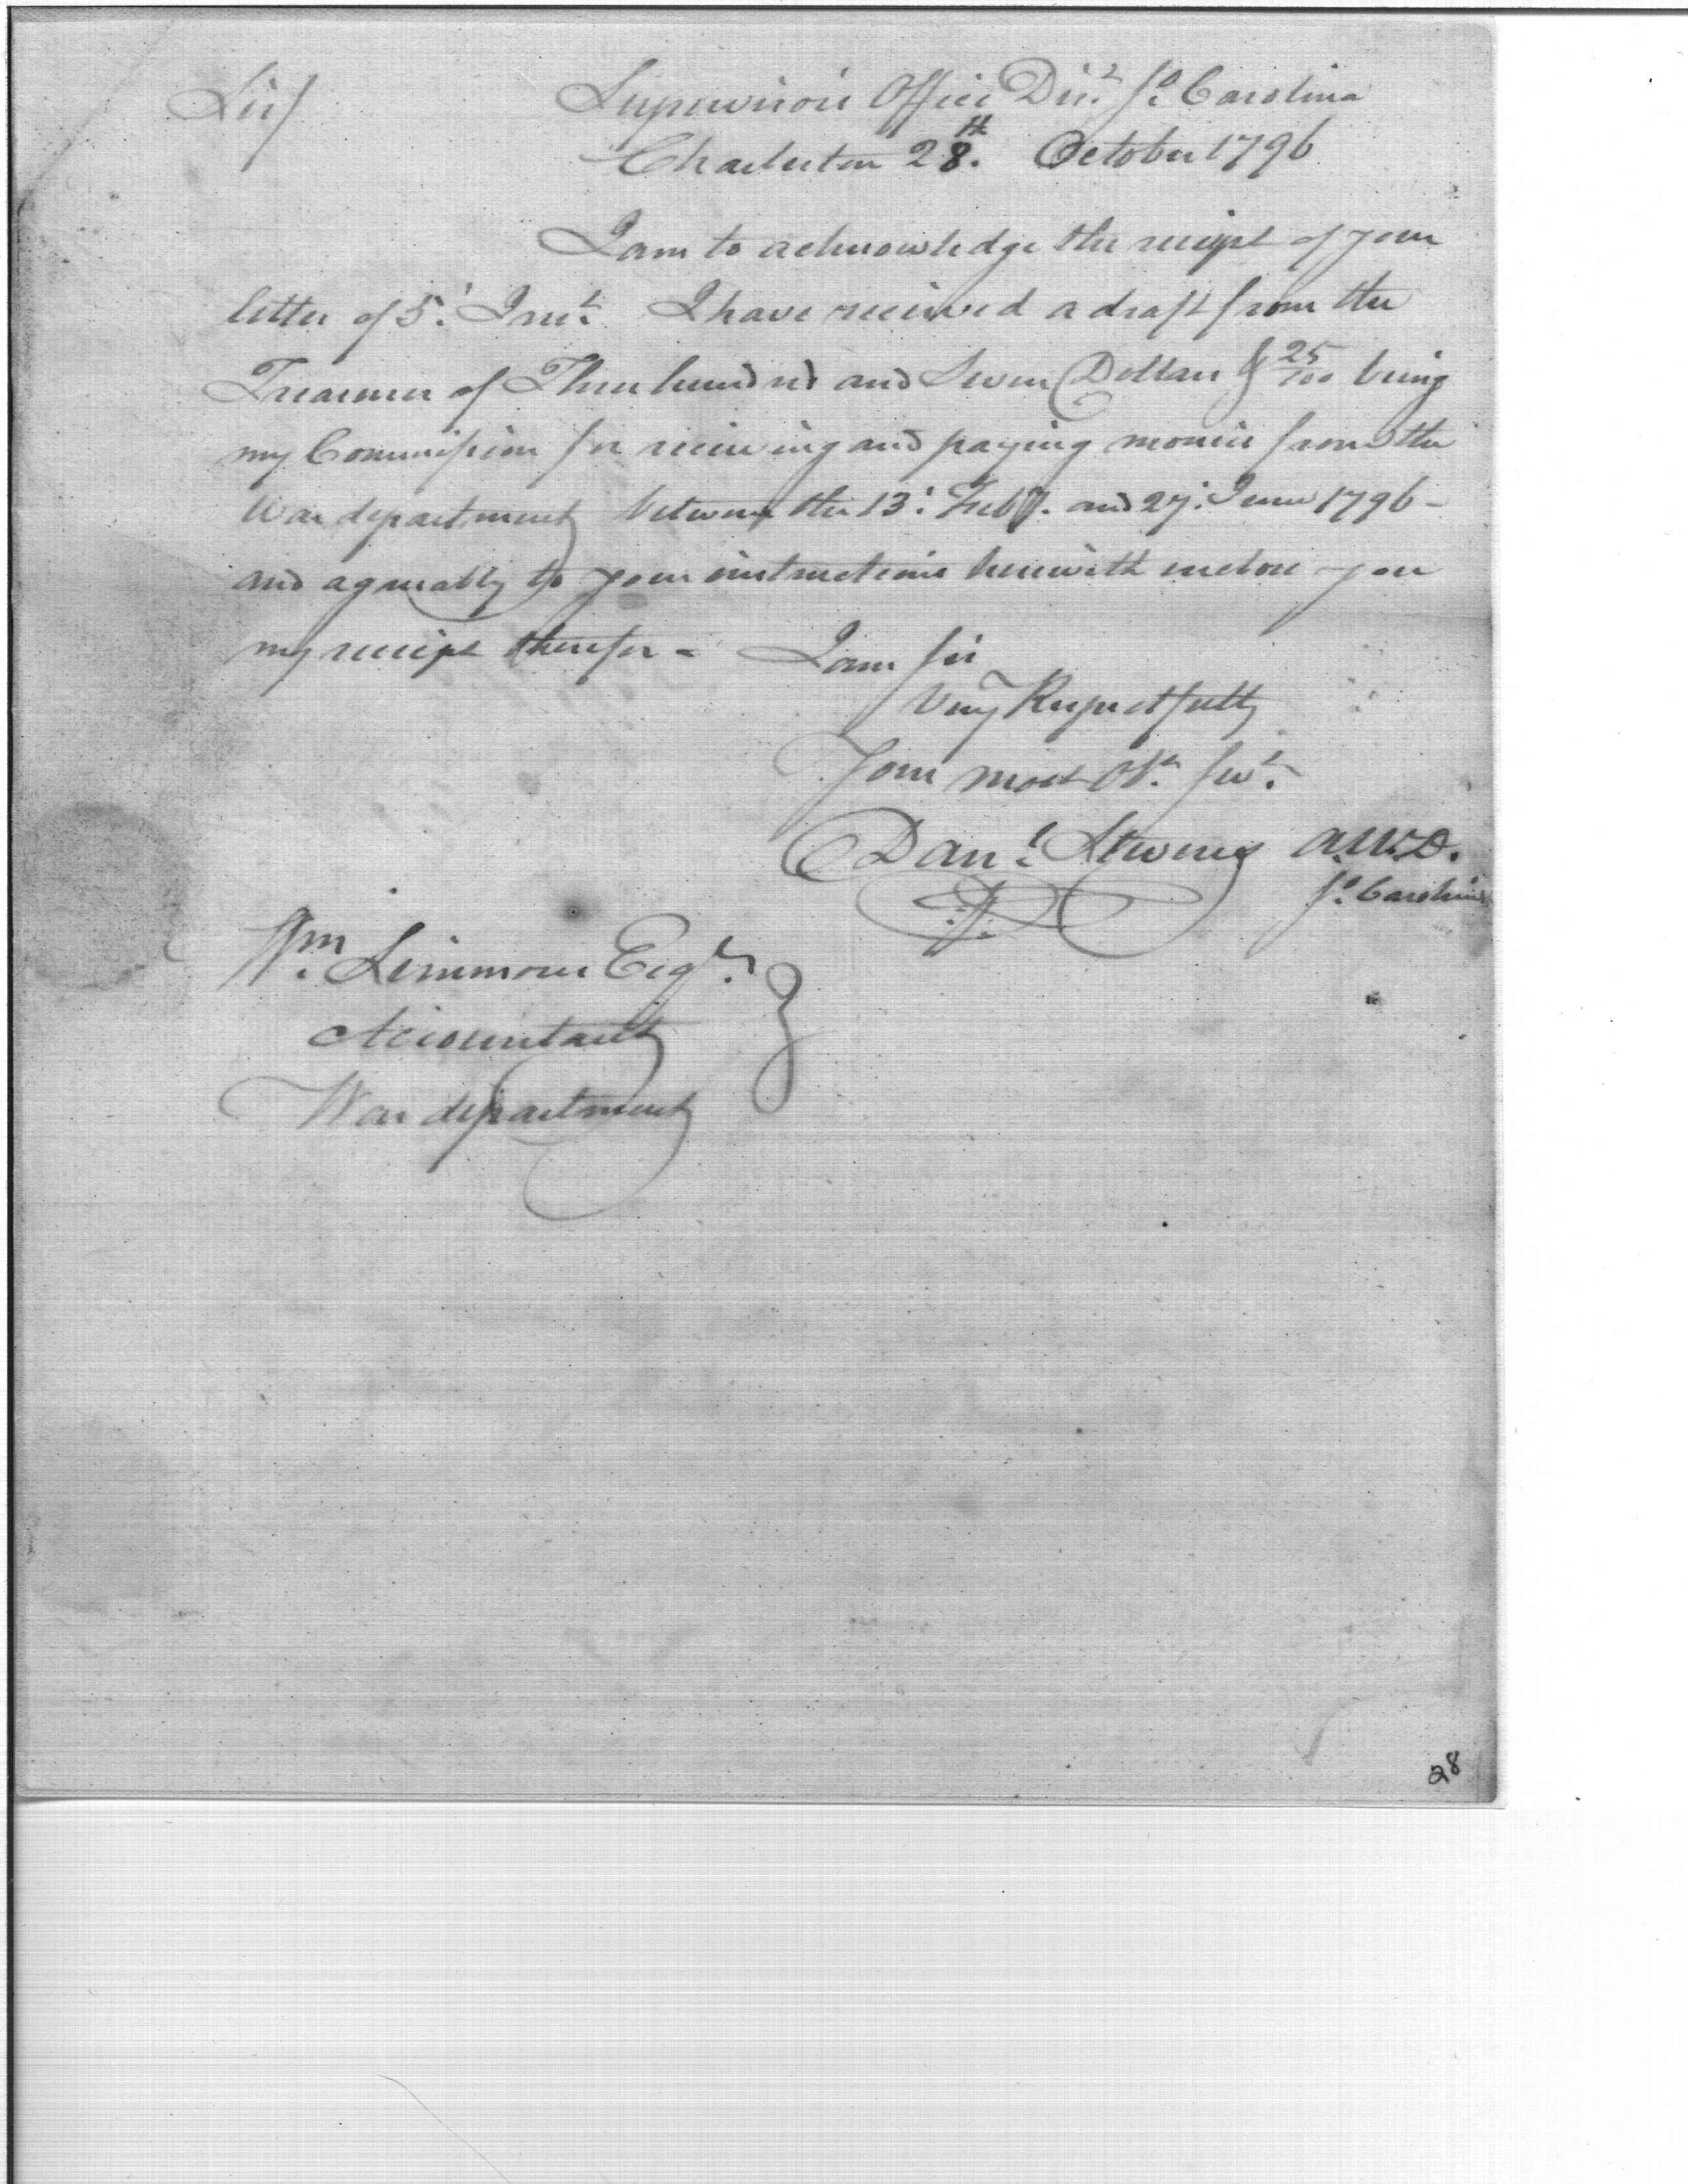 Sir/
Supervisors Office Dist. So. Carolina
Charleston 28th. October 1796
I am to acknowledge the receipt of your
letter of 5. Inst. I have received a draft from the
Treasurer of Three hundred and Seven Dollars & 25/100 being
my Commission for receiving and paying monies from the
War department between the 13. Feby. and 27. June 1796 -
and agreeably to your instructions herewith enclose you
my receipt therefor -
I am Sir
Very Respectfully
Your most Obt. Servt.
Danl. Stevens A.W.D.
So. Carolina
Wm. Simmons Esqr.
Accountant
War department
28